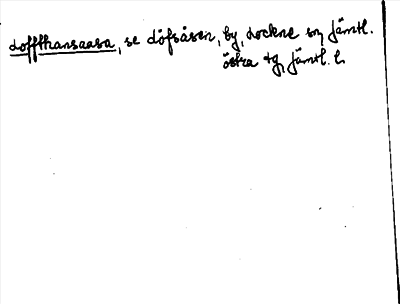 Doffthansaasa, se Döfsåsen, by, Lockne sn, Jämtl.
östra tg, Jämtl. l.